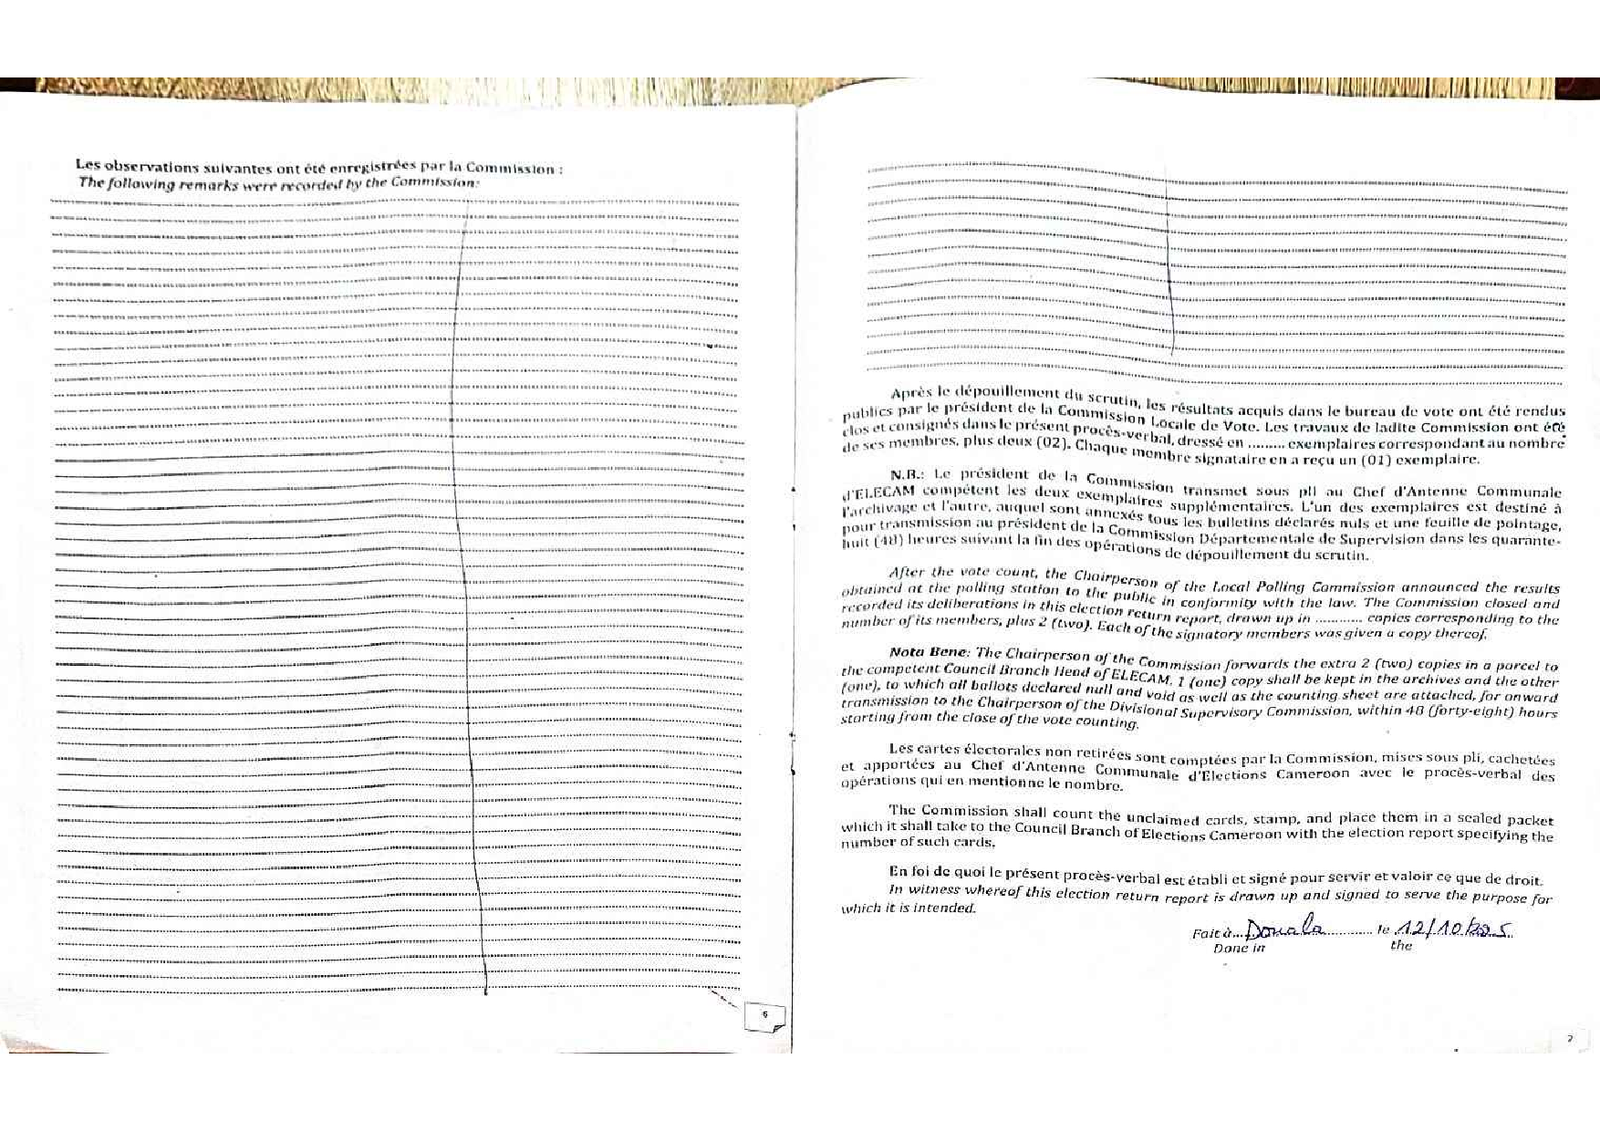 Les observations suivantes ont été enregistrées par la Commission :
The following remarks were recorded by the Commission:
6
Après le dépouillement du scrutin, les résultats acquis dans le bureau de vote ont été rendus
publics par le président de la Commission Locale de Vote. Les travaux de ladite Commission ont été
clos et consignés dans le présent procès-verbal, dressé en ......... exemplaires correspondant au nombre
de ses membres, plus deux (02). Chaque membre signataire en a reçu un (01) exemplaire.
N.B.: Le président de la Commission transmet sous pli au Chef d'Antenne Communale
d'ELECAM compétent les deux exemplaires supplémentaires. L'un des exemplaires est destiné à
l'archivage et l'autre, auquel sont annexés tous les bulletins déclarés nuls et une feuille de pointage,
pour transmission au président de la Commission Départementale de Supervision dans les quarante-
huit (48) heures suivant la fin des opérations de dépouillement du scrutin.
After the vote count, the Chairperson of the Local Polling Commission announced the results
obtained at the polling station to the public in conformity with the law. The Commission closed and
recorded its deliberations in this election return report, drawn up in ........... copies corresponding to the
number of its members, plus 2 (two). Each of the signatory members was given a copy thereof.
Nota Bene: The Chairperson of the Commission forwards the extra 2 (two) copies in a parcel to
the competent Council Branch Head of ELECAM. 1 (one) copy shall be kept in the archives and the other
(one), to which all ballots declared null and void as well as the counting sheet are attached, for onward
transmission to the Chairperson of the Divisional Supervisory Commission, within 48 (forty-eight) hours
starting from the close of the vote counting.
Les cartes électorales non retirées sont comptées par la Commission, mises sous pli, cachetées
et apportées au Chef d'Antenne Communale d'Elections Cameroon avec le procès-verbal des
opérations qui en mentionne le nombre.
The Commission shall count the unclaimed cards, stamp, and place them in a sealed packet
which it shall take to the Council Branch of Elections Cameroon with the election report specifying the
number of such cards.
En foi de quoi le présent procès-verbal est établi et signé pour servir et valoir ce que de droit.
In witness whereof this election return report is drawn up and signed to serve the purpose for
which it is intended.
Fait à... Douala ............ le 12/10/2025
Done in the
7